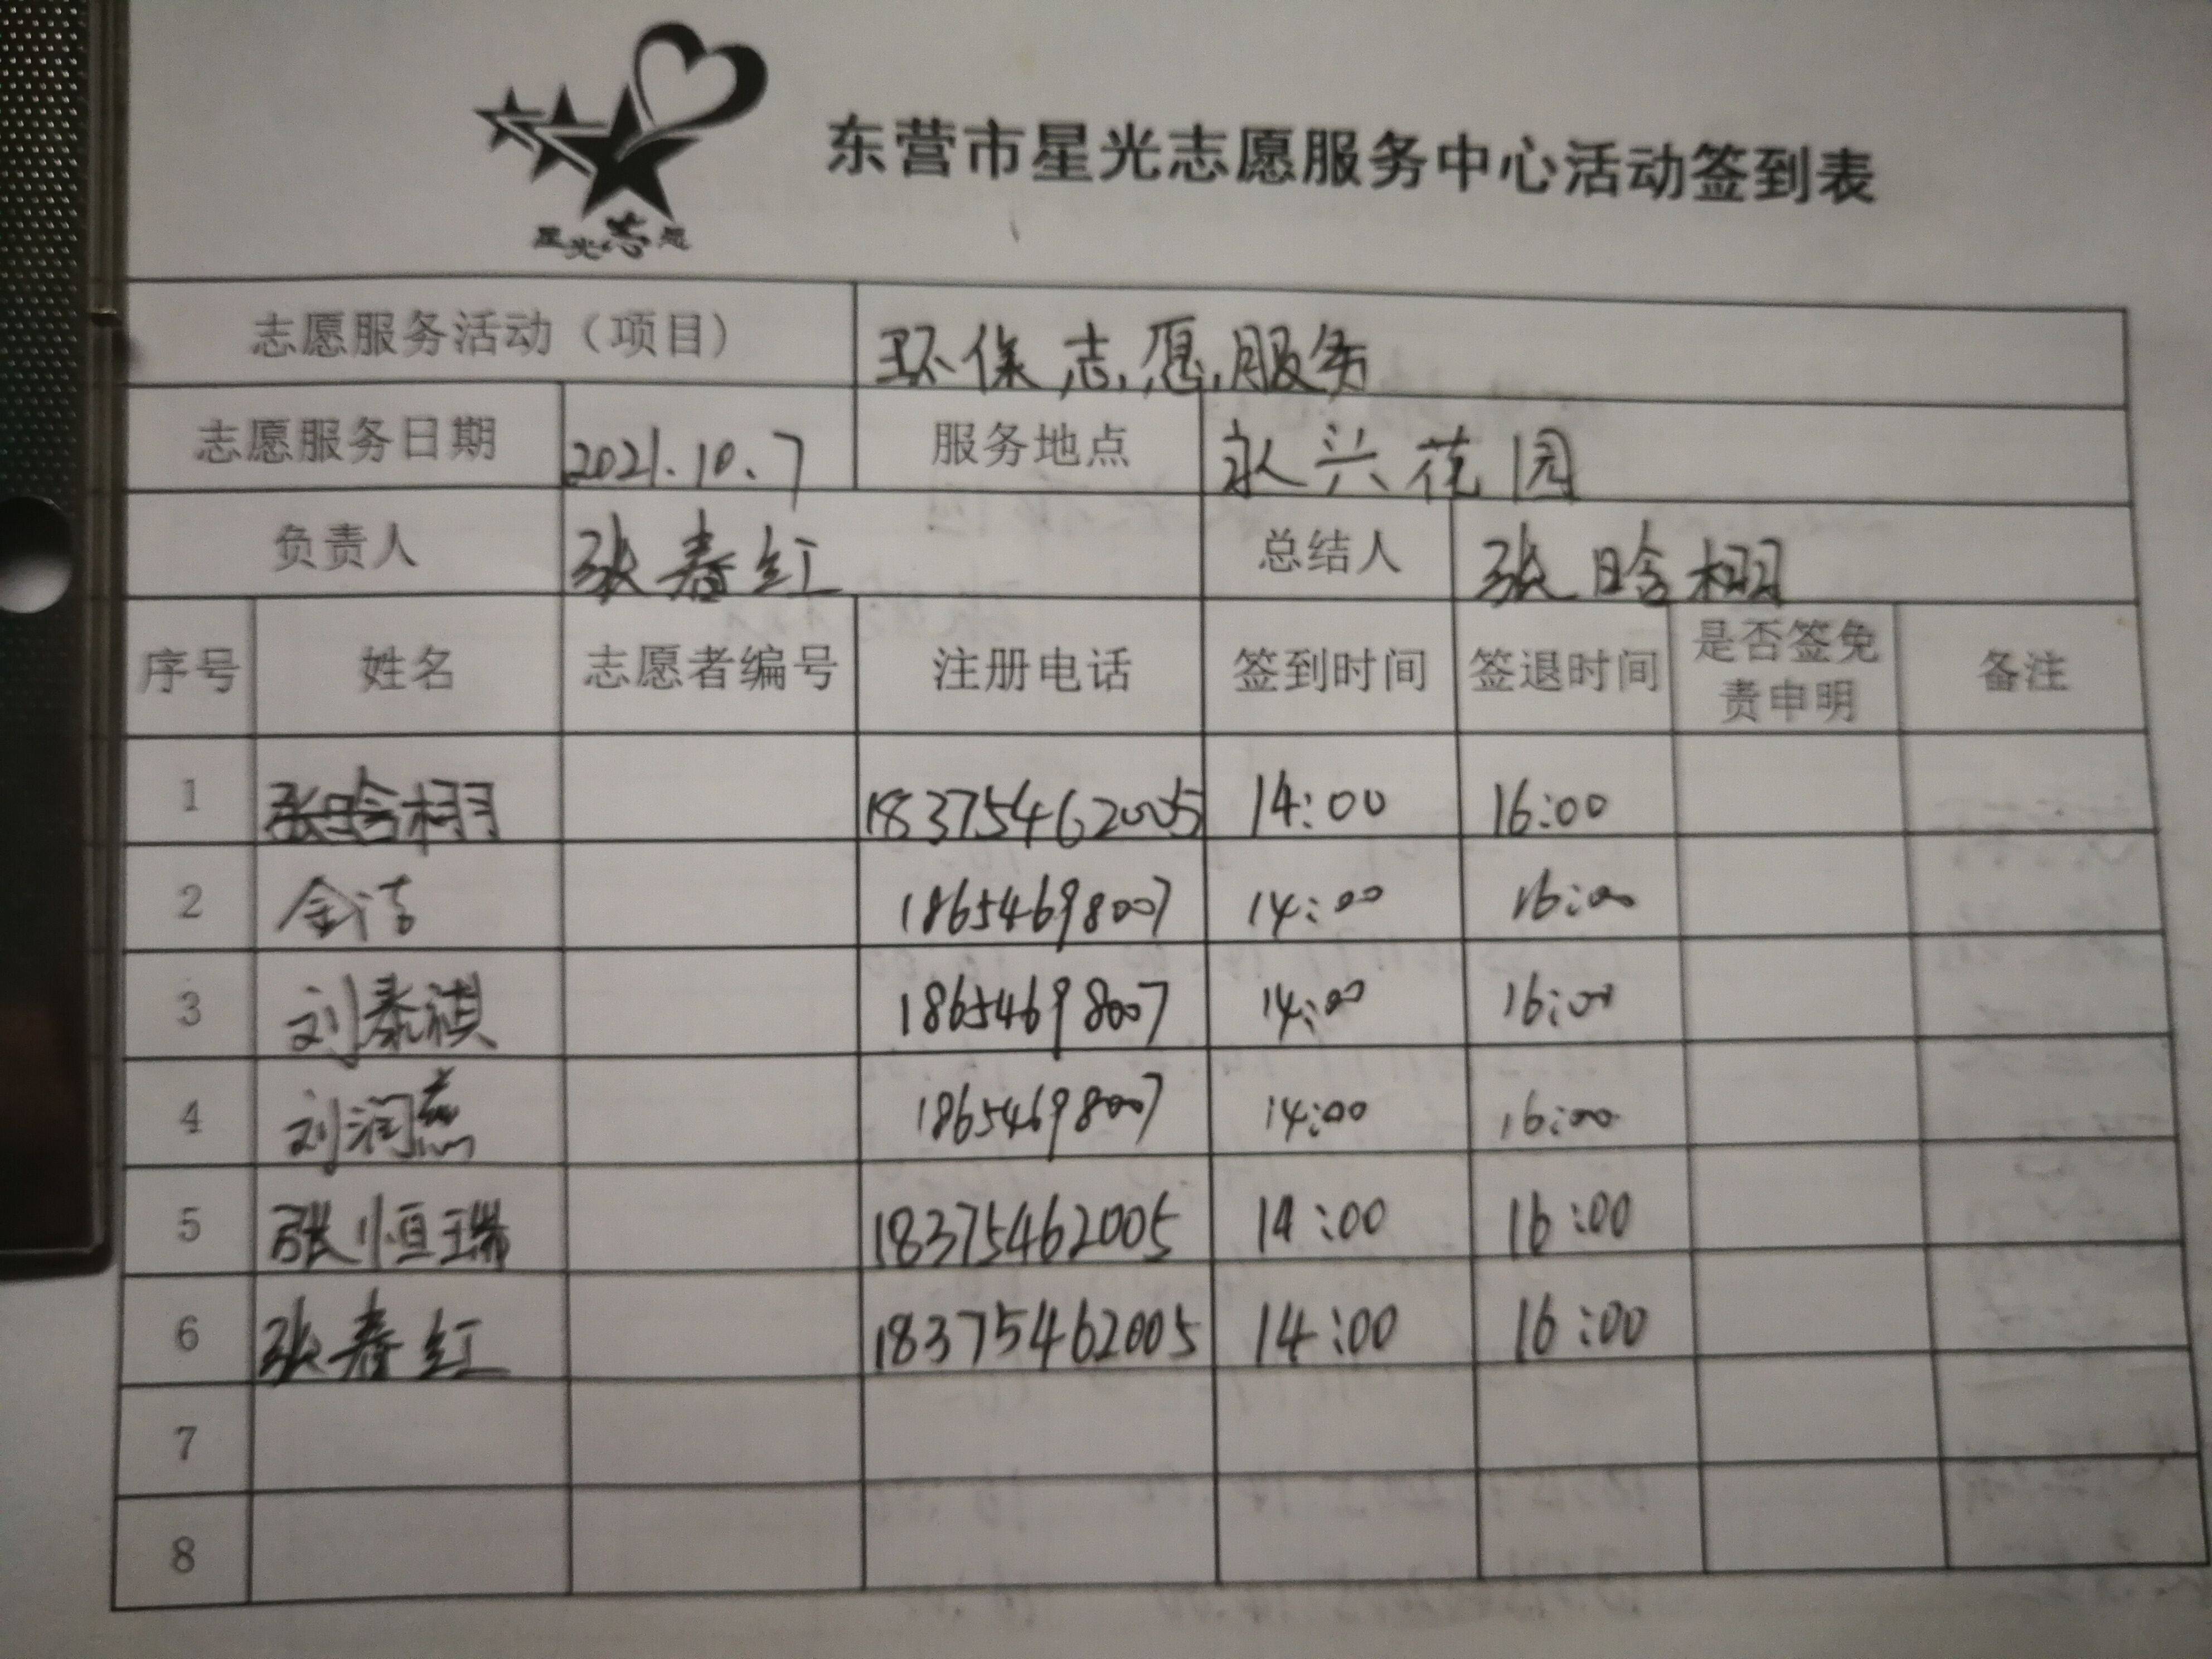 东营市星光志愿服务中心活动签到表
星光志愿
志愿服务活动（项目） 环保志愿服务
志愿服务日期 2021.10.7 服务地点 永兴花园
负责人 张春红 总结人 张晗栩
序号 姓名 志愿者编号 注册电话 签到时间 签退时间 是否签免责申明 备注
1 张晗栩 18375462005 14:00 16:00
2 金洁 18654698007 14:00 16:00
3 刘泰祺 18654698007 14:00 16:00
4 刘润燕 18654698007 14:00 16:00
5 张恒瑞 18375462005 14:00 16:00
6 张春红 18375462005 14:00 16:00
7
8